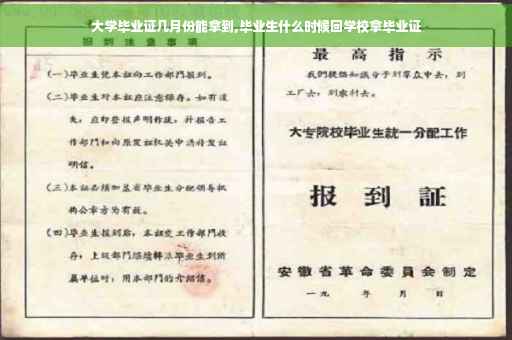 大学毕业证几月份能拿到,毕业生什么时候回学校拿毕业证
报到注意事项
(一)毕业生凭本证向工作部门报到。
(二)毕业生对本证应注意保存。如有遗
失,应即登报声明作废,并报告工
作部门和向原发证机关申请补发证
明信。
(三)本证必须加盖省毕业生分配领导机
构公章方为有效。
(四)毕业生报到后,本证交工作部门收
存;上级部门继续转派毕业生到所
属单位时,用本部门的介绍信。
最高指示
我们提倡知识分子到羣众中去,到
工厂去,到农村去。
大专院校毕业生統一分配工作
报到証
安徽省革命委員会制定
一九 年 月 日